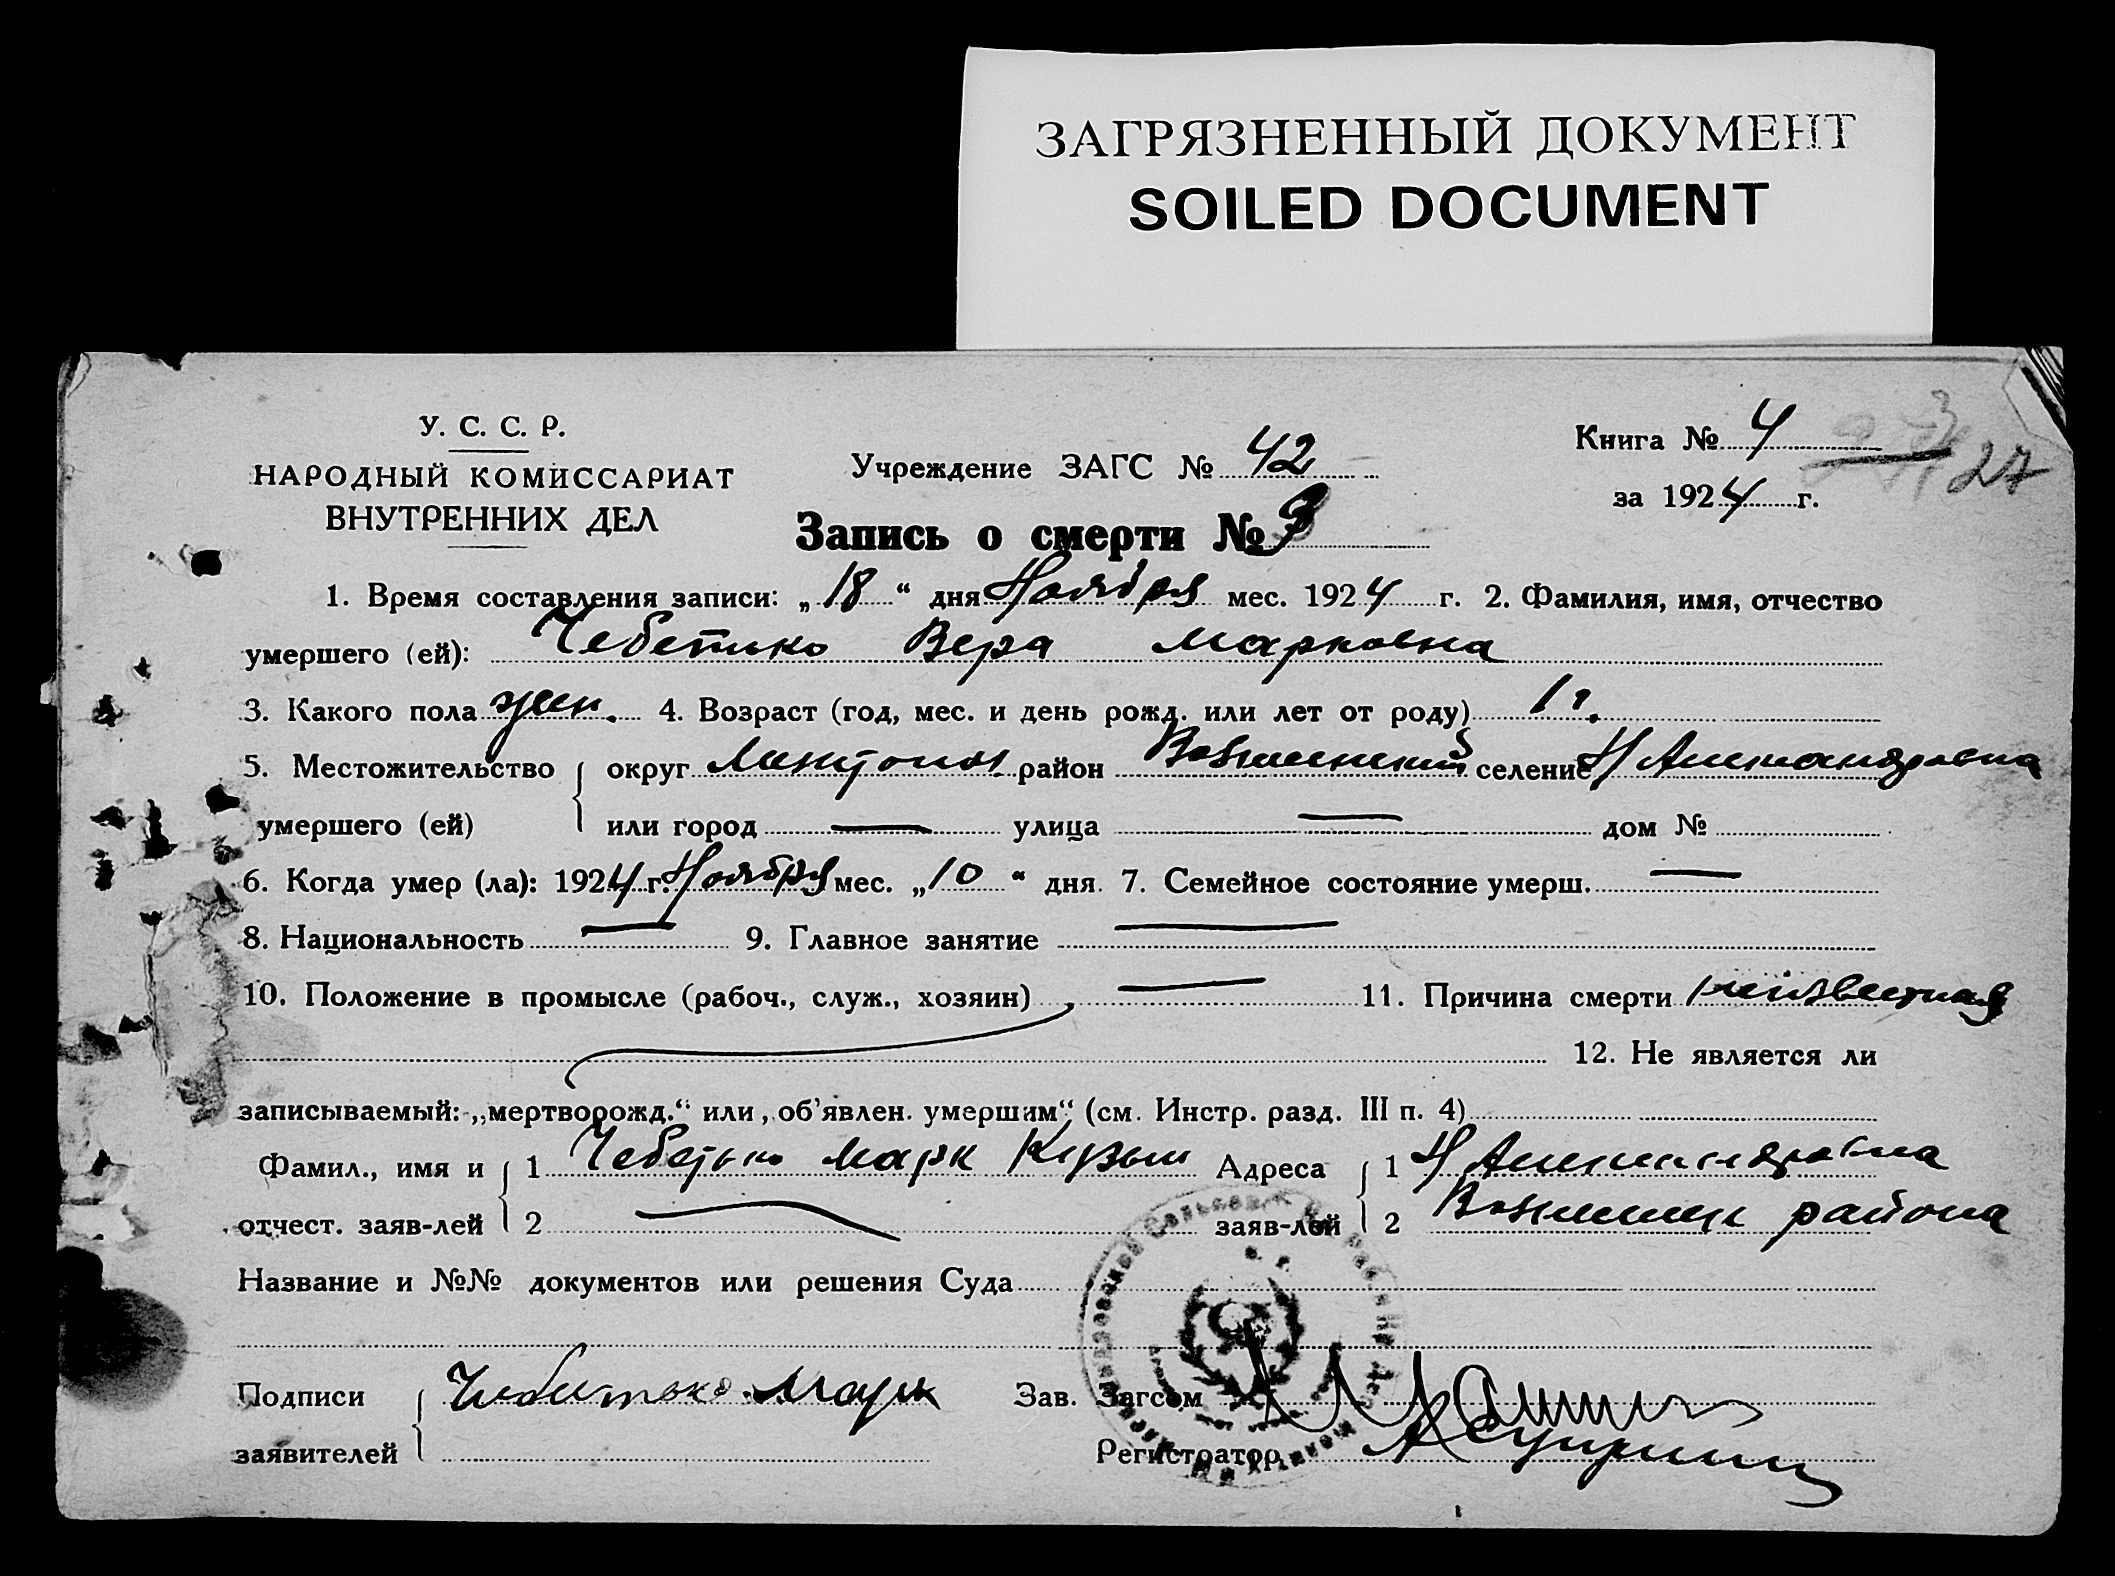 ЗАГРЯЗНЕННЫЙ ДОКУМЕНТ
SOILED DOCUMENT
У. С. С. Р.
НАРОДНЫЙ КОМИССАРИАТ
ВНУТРЕННИХ ДЕЛ
Учреждение ЗАГС № 42
Книга № 4
27
за 1924 г.
Запись о смерти №
1. Время составления записи: „18“ дня Ноября мес. 1924 г. 2. Фамилия, имя, отчество
умершего (ей): Чебетько Вера Марковна
3. Какого пола жен. 4. Возраст (год, мес. и день рожд. или лет от роду) 1 г.
5. Местожительство округ район селение
умершего (ей) или город — улица — дом №
6. Когда умер (ла): 1924 г. Ноября мес. „10“ дня. 7. Семейное состояние умерш. —
8. Национальность — 9. Главное занятие —
10. Положение в промысле (рабоч., служ., хозяин) — 11. Причина смерти неизвестная
12. Не является ли
записываемый: „мертворожд.“ или „об'явлен. умершим“ (см. Инстр. разд. III п. 4)
Фамил., имя и 1 Чебетько Марк Адреса 1
отчест. заяв-лей 2 — заяв-лей 2 района
Название и №№ документов или решения Суда
Подписи Чебетько Марк Зав. Загсом
заявителей Регистратор